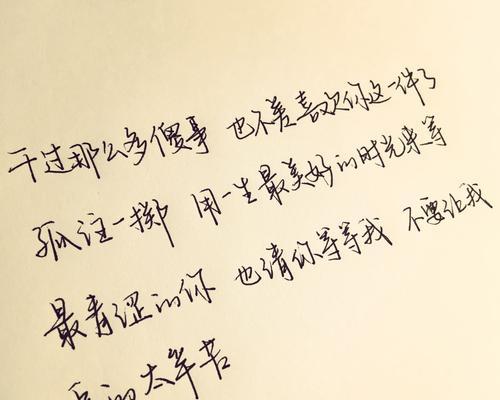 干过那么多傻事 也不差喜欢你这一件了
孤注一掷 用一生最美好的时光来等
最青涩的你 也请你等等我 不要让我
的太辛苦